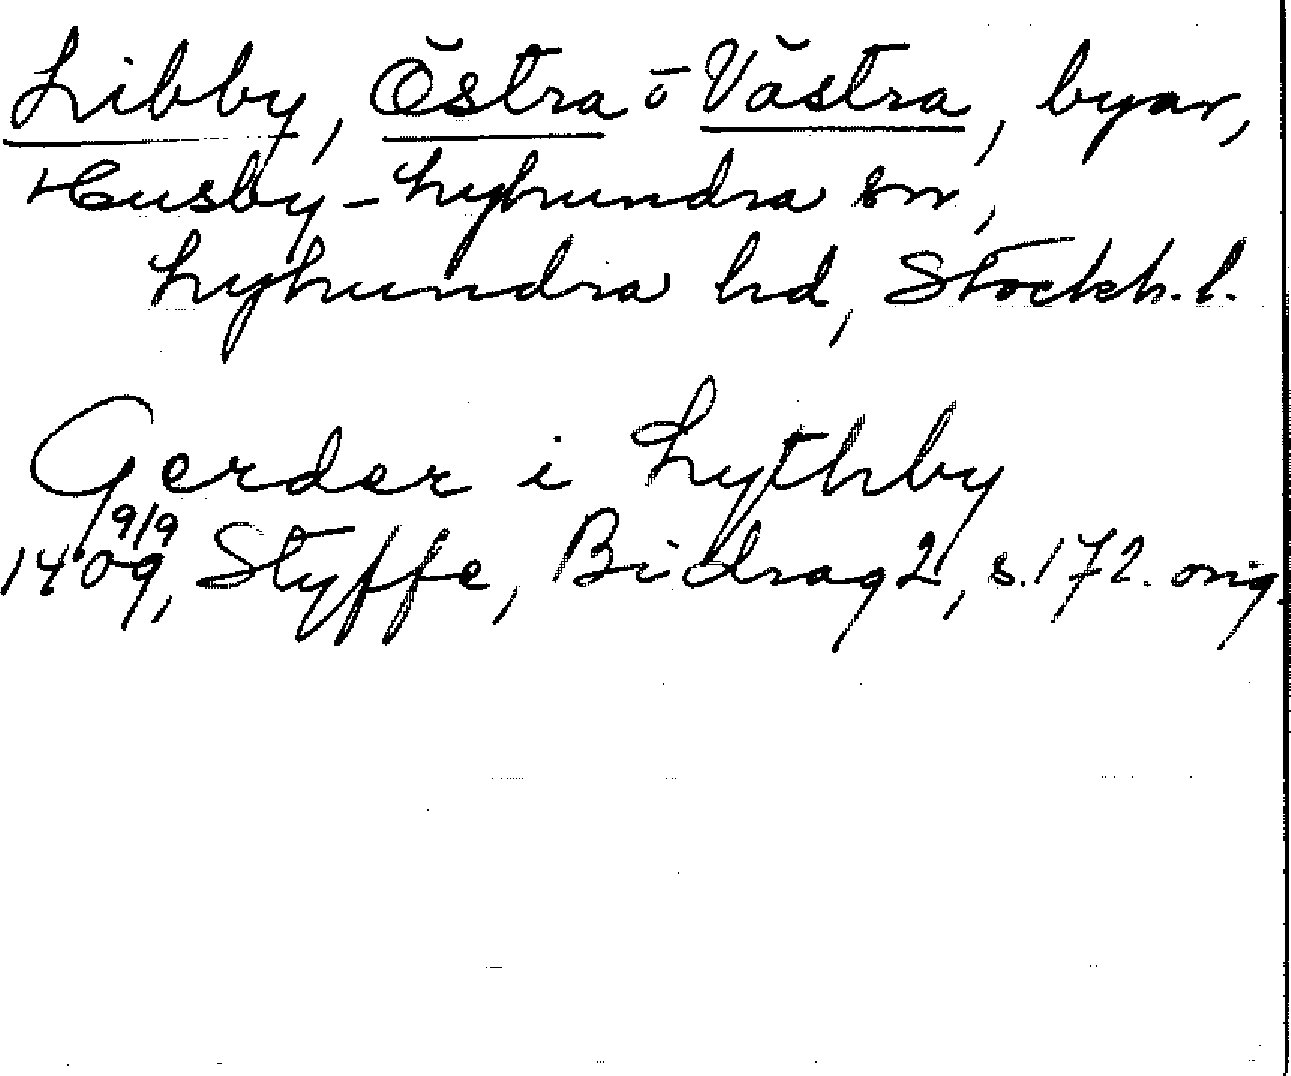 Libby, Östra o Västra, byar,
Husby-Lyhundra sn,
Lyhundra hd, Stockh. l.
Gerder i Lythby
9/9
1409, Styffe, Bidrag 2, s. 172. orig.